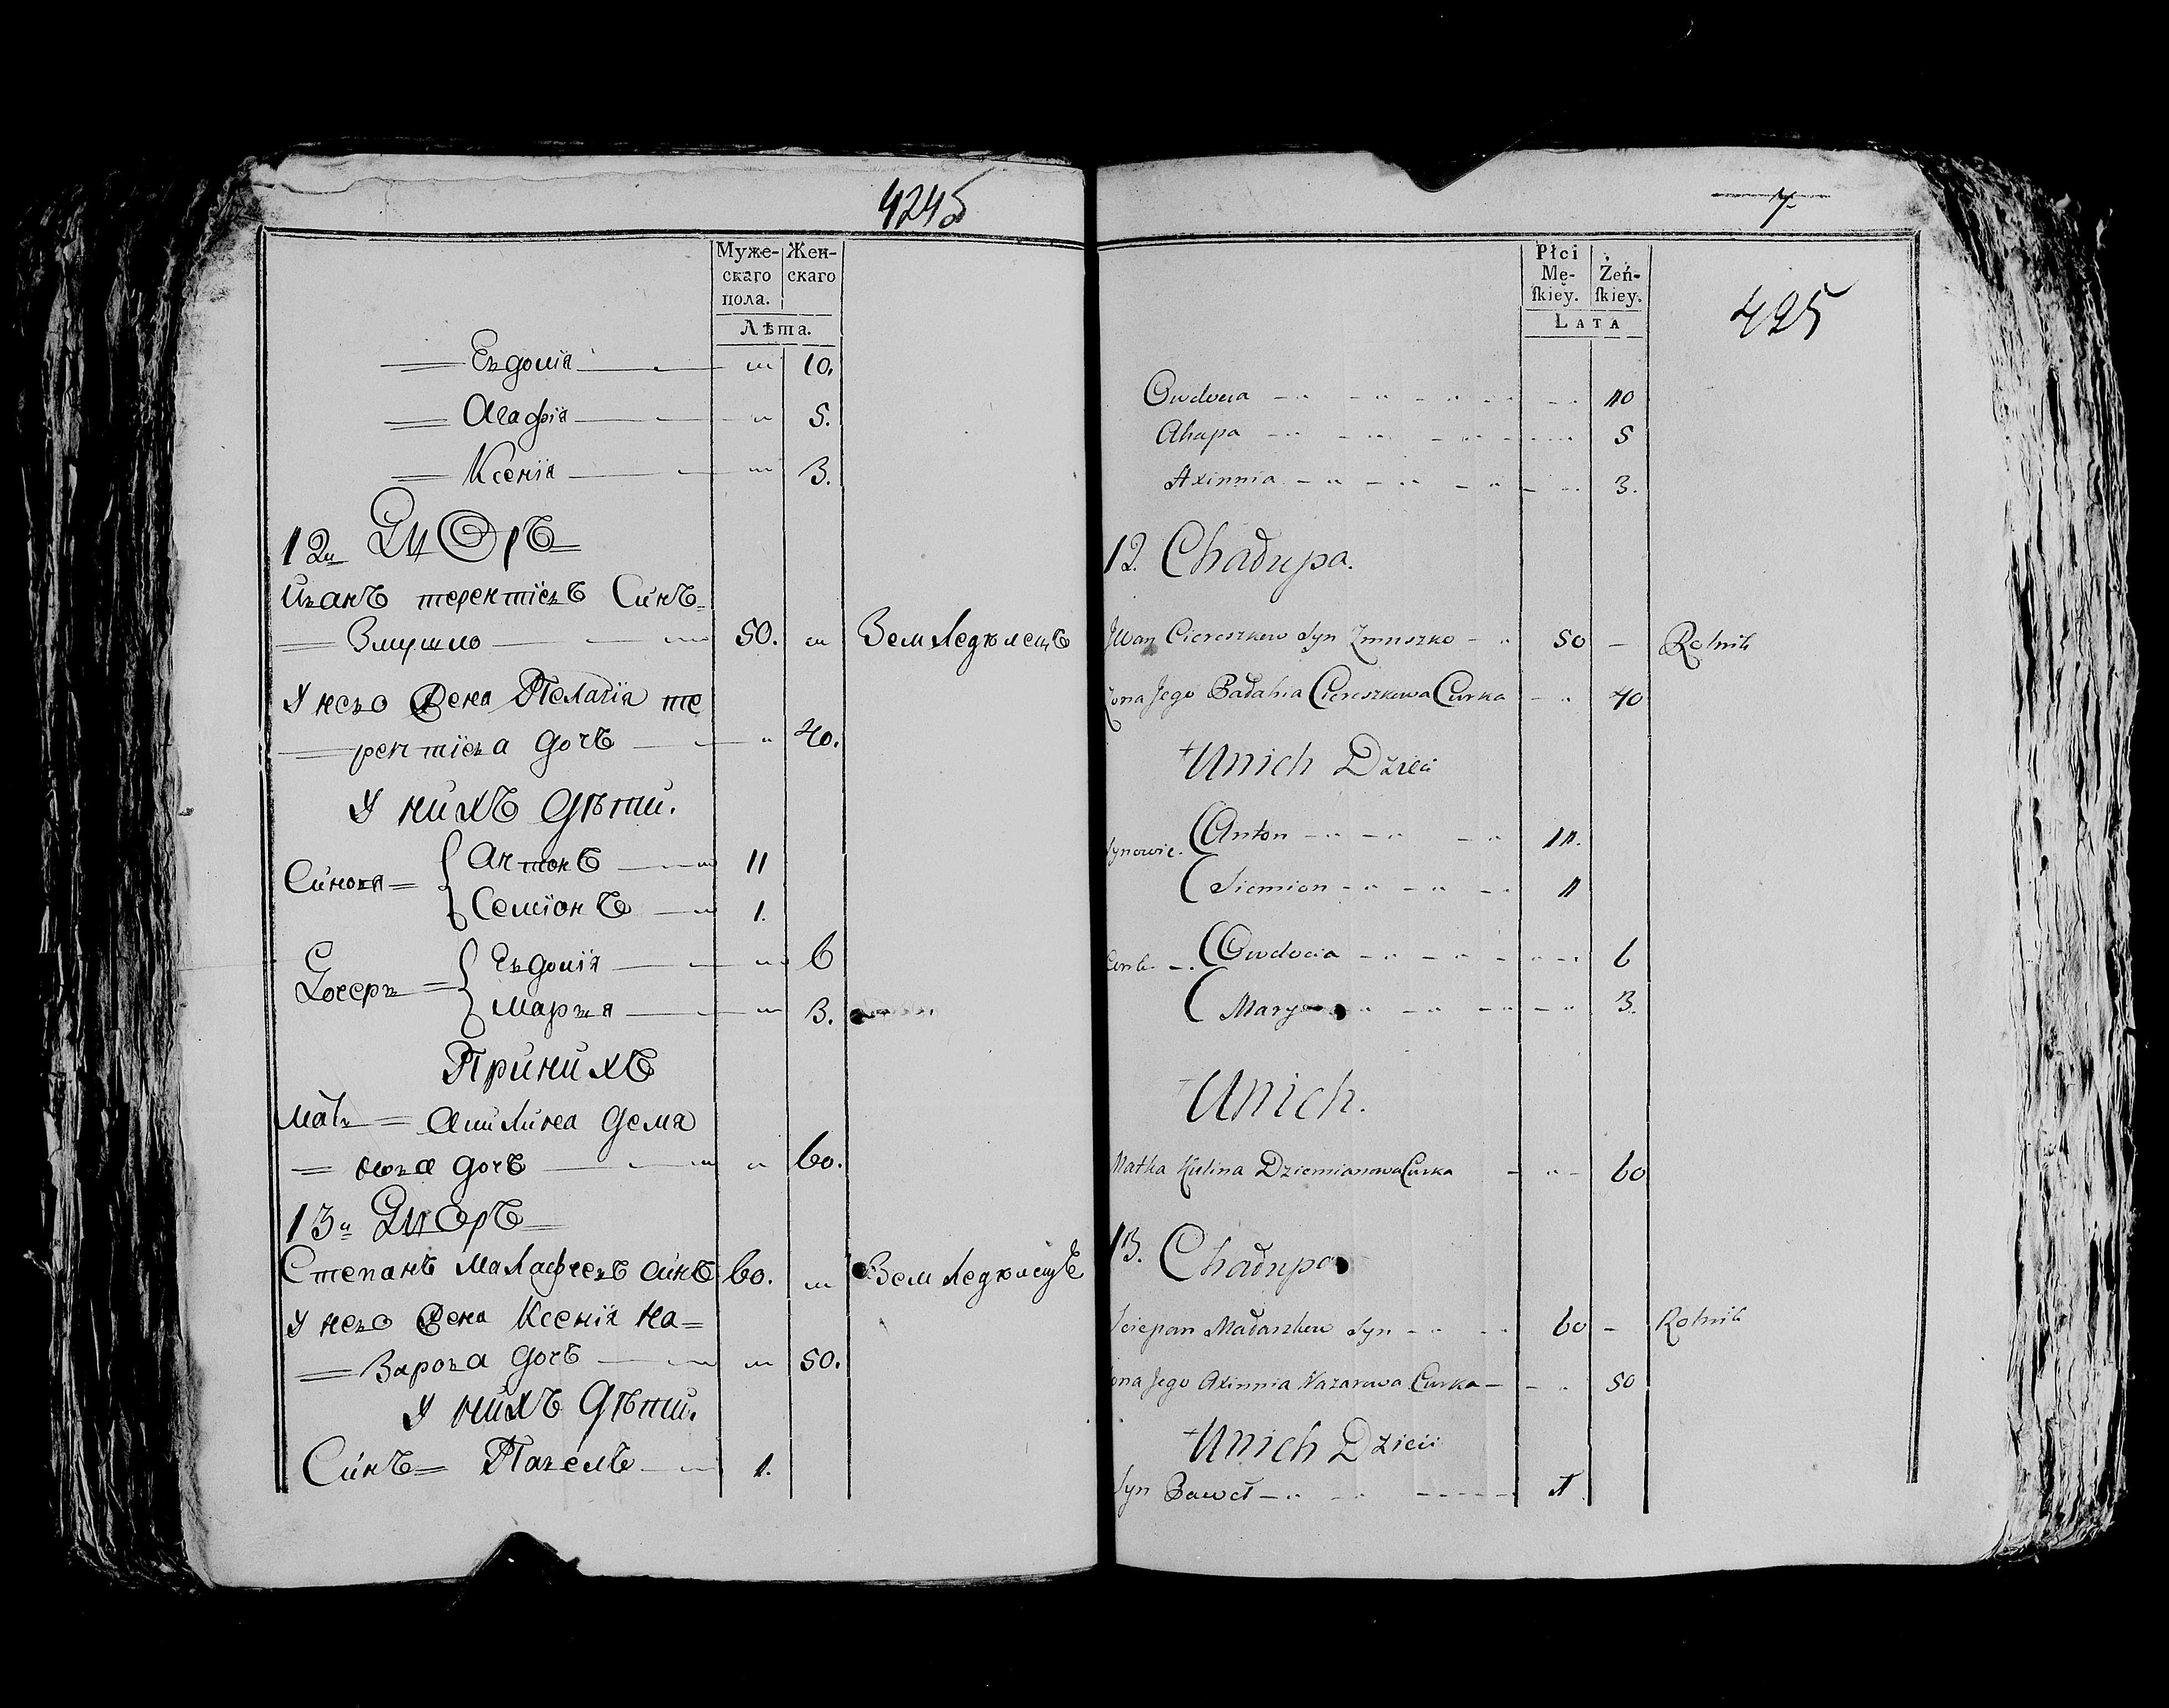 4245
Муже- Жен-
скаго скаго
пола.
Лѣта.
Евдокiя — „ 10.
Агафiя — „ 5.
Ксенiя — „ 3.
12й Дворъ
Иванъ терентiевъ Синъ
50. „ Земледѣлецъ
У него Жена Пелагiя те
рентiева дочъ — „ 40.
У нихъ дѣти.
Синовя { Антонъ — 11
Семiонъ — 1.
Дочери { Евдокiя — „ 6
Маръя — „ 3.
При нихъ
Мать = Акилина Демя
нова дочъ — „ 60.
13й Дворъ
Степанъ Малафеевъ синъ 60. „ Земледѣлецъ
У него Жена Ксенiя На=
=зарова дочъ — „ 50.
У нихъ дѣти.
Синъ = Павелъ — 1.
7
Płci
Mę- Żeń-
ſkiey. ſkiey.
LATA
425
Owdocia 10
Ahapa 5
Axinnia 3.
12. Chałupa.
Jwan Ciereszkow Syn Zmuszko 50 – Rolnik
Żona Jego Pałahia Ciereszkowa Curka 40
U nich Dzieci
Synowie. (Anton 11.
(Siemion 1
Curki (Owdocia 6
(Marya 3.
U nich.
Matka Kulina Dziemianowa Curka 60
13. Chałupa
Sciepan Małaszkow Syn 60 – Rolnik
Żona Jego Axinnia Nazarowa Curka 50
U nich Dzieci
Syn Paweł 1